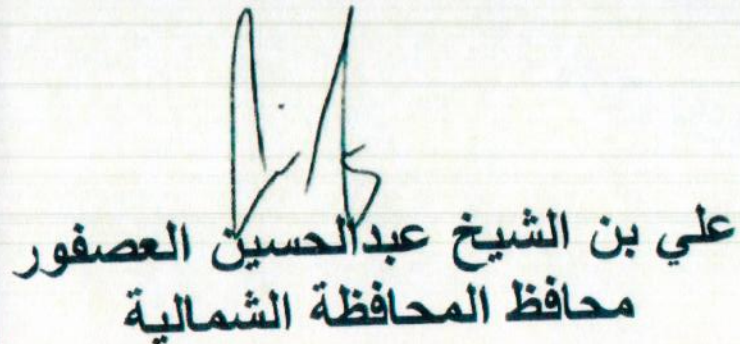 علي بن الشيخ عبدالحسين العصفور
محافظ المحافظة الشمالية